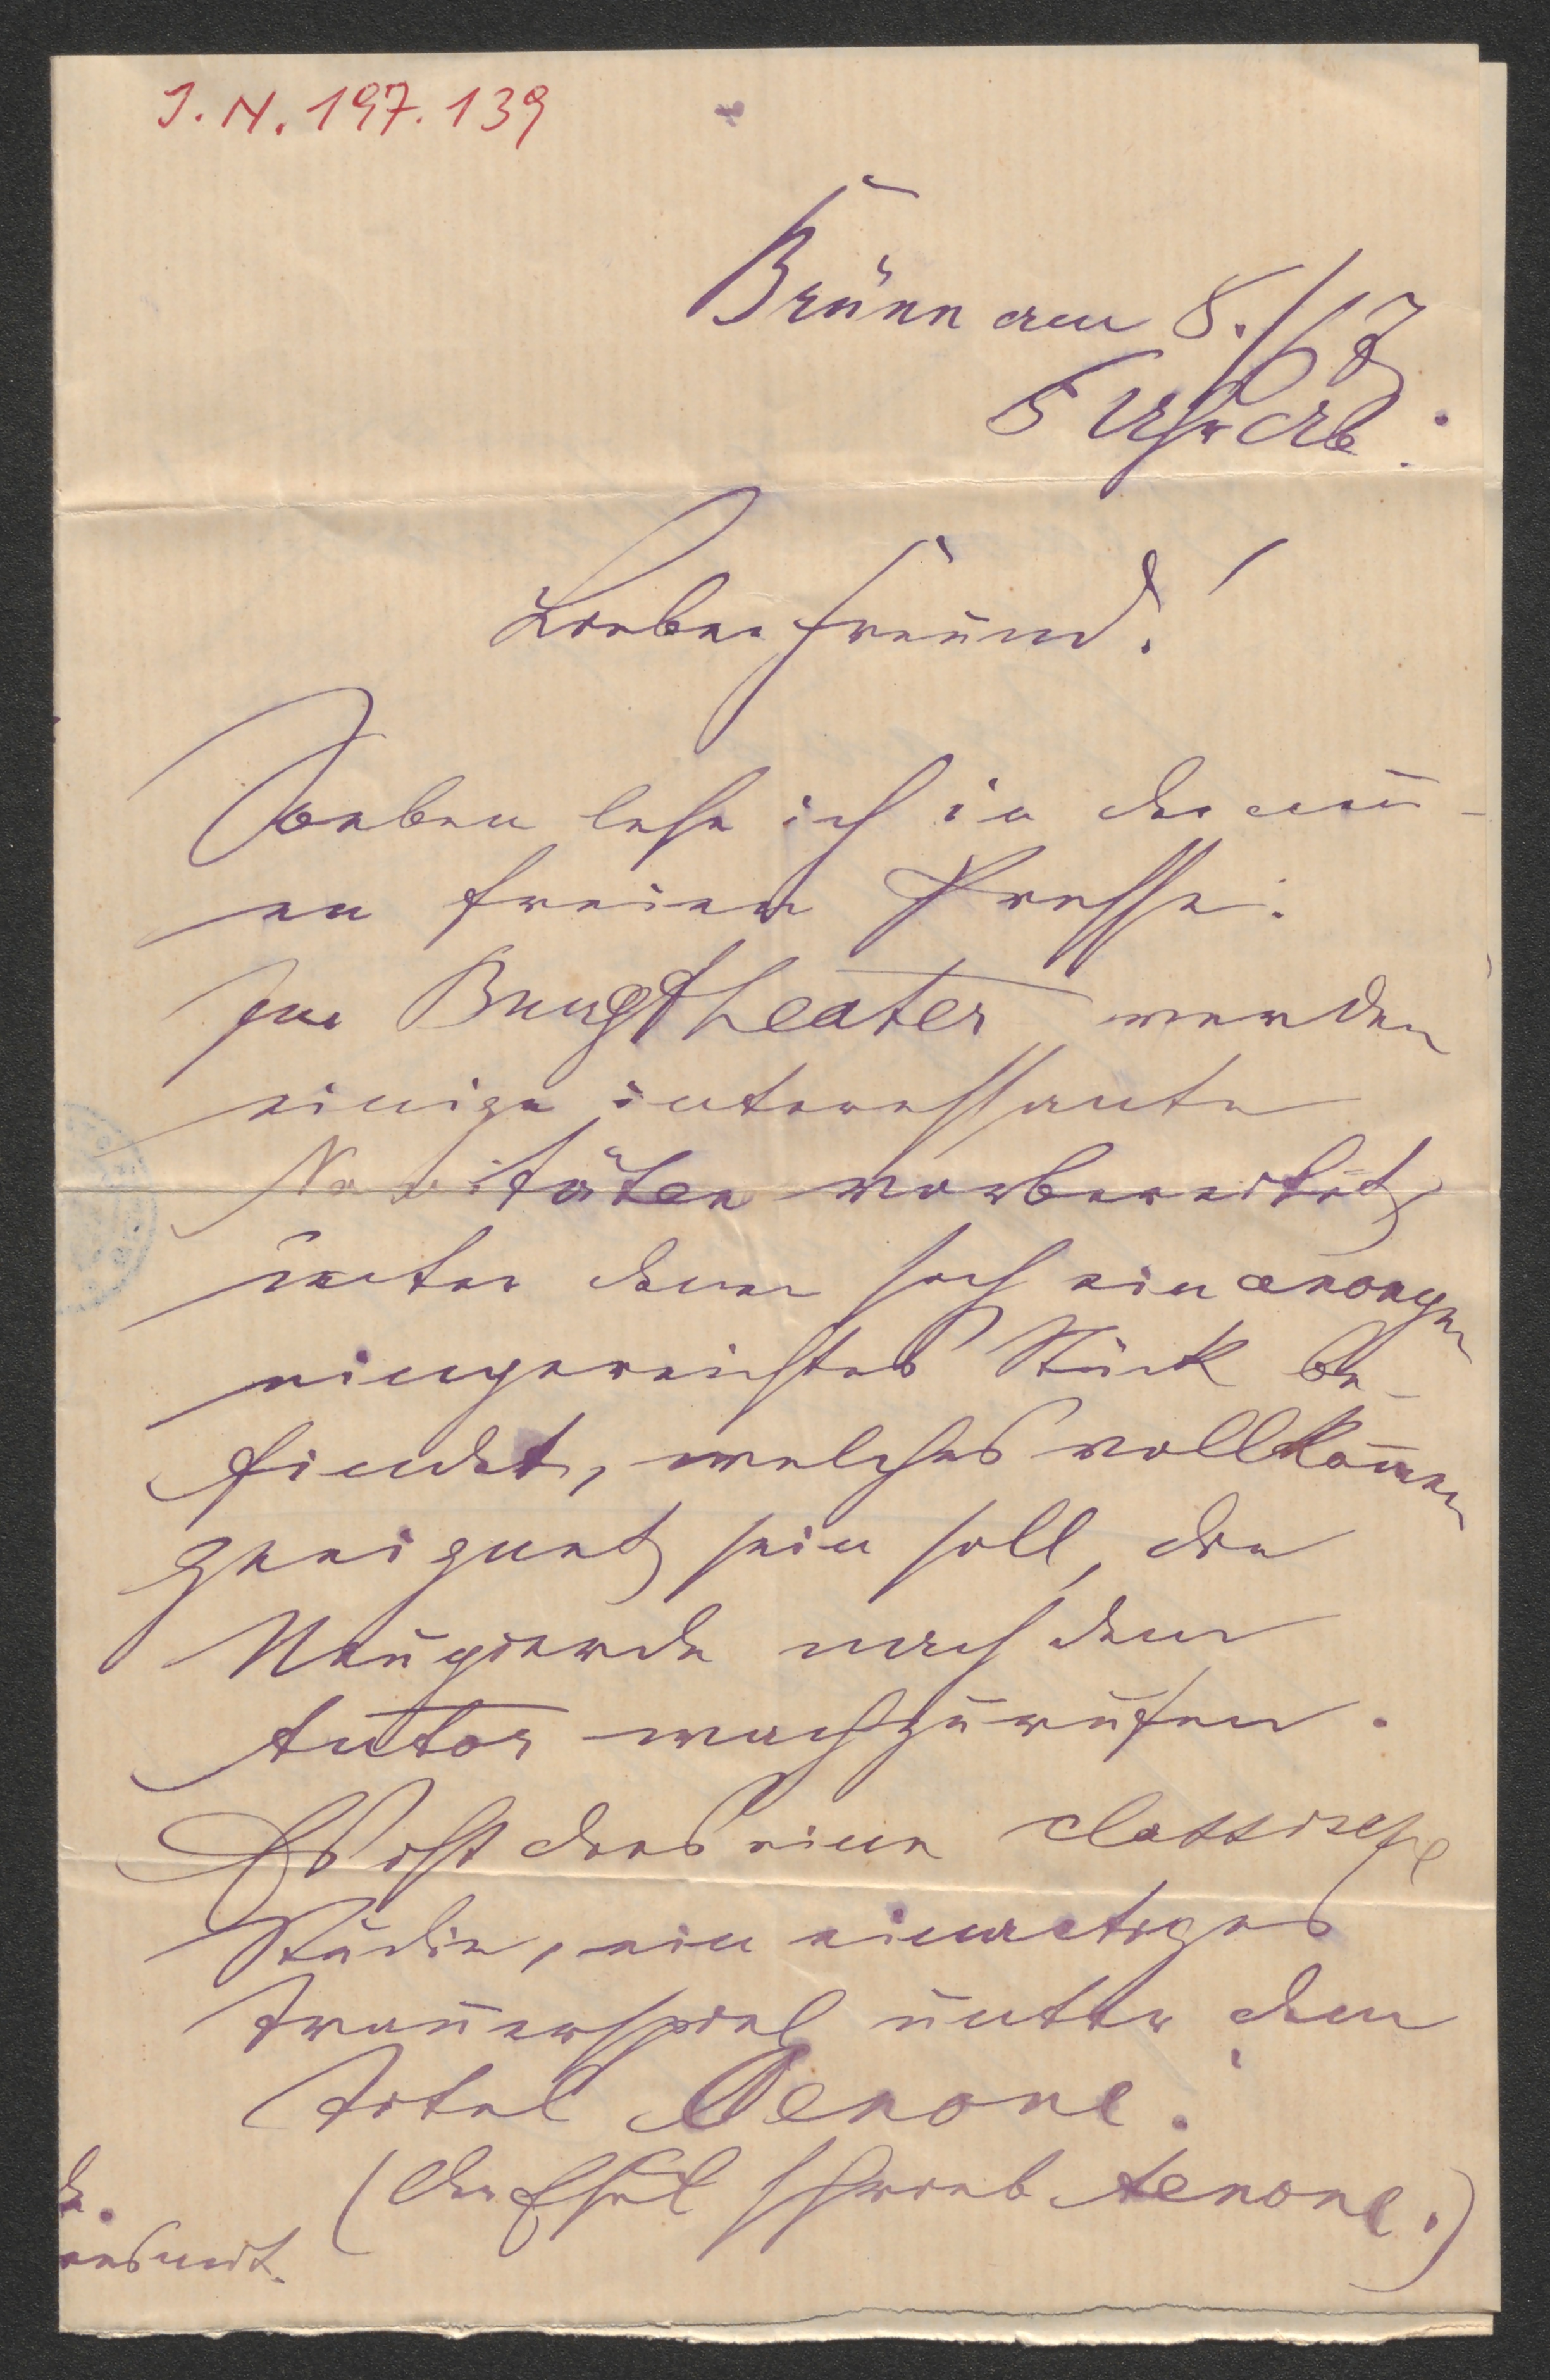 J. N. 197.139
Brünn am 8./7.
5 Uhr Ab.
Lieber Freund!
Soeben lese ich in der neu-
en freien Presse:
Im Burgtheater werden
einige interessante
Novitäten vorbereitet,
unter denen sich ein anonym
eingereichtes Stück be-
findet, welches vollkom̄en
geeignet sein soll, die
Neugierde nach dem
Autor wachzurufen.
Es ist dies eine classische
Studie, ein einactiges
Trauerspiel unter dem
Titel Oenone.
(Der Esel schrieb Aenone.)